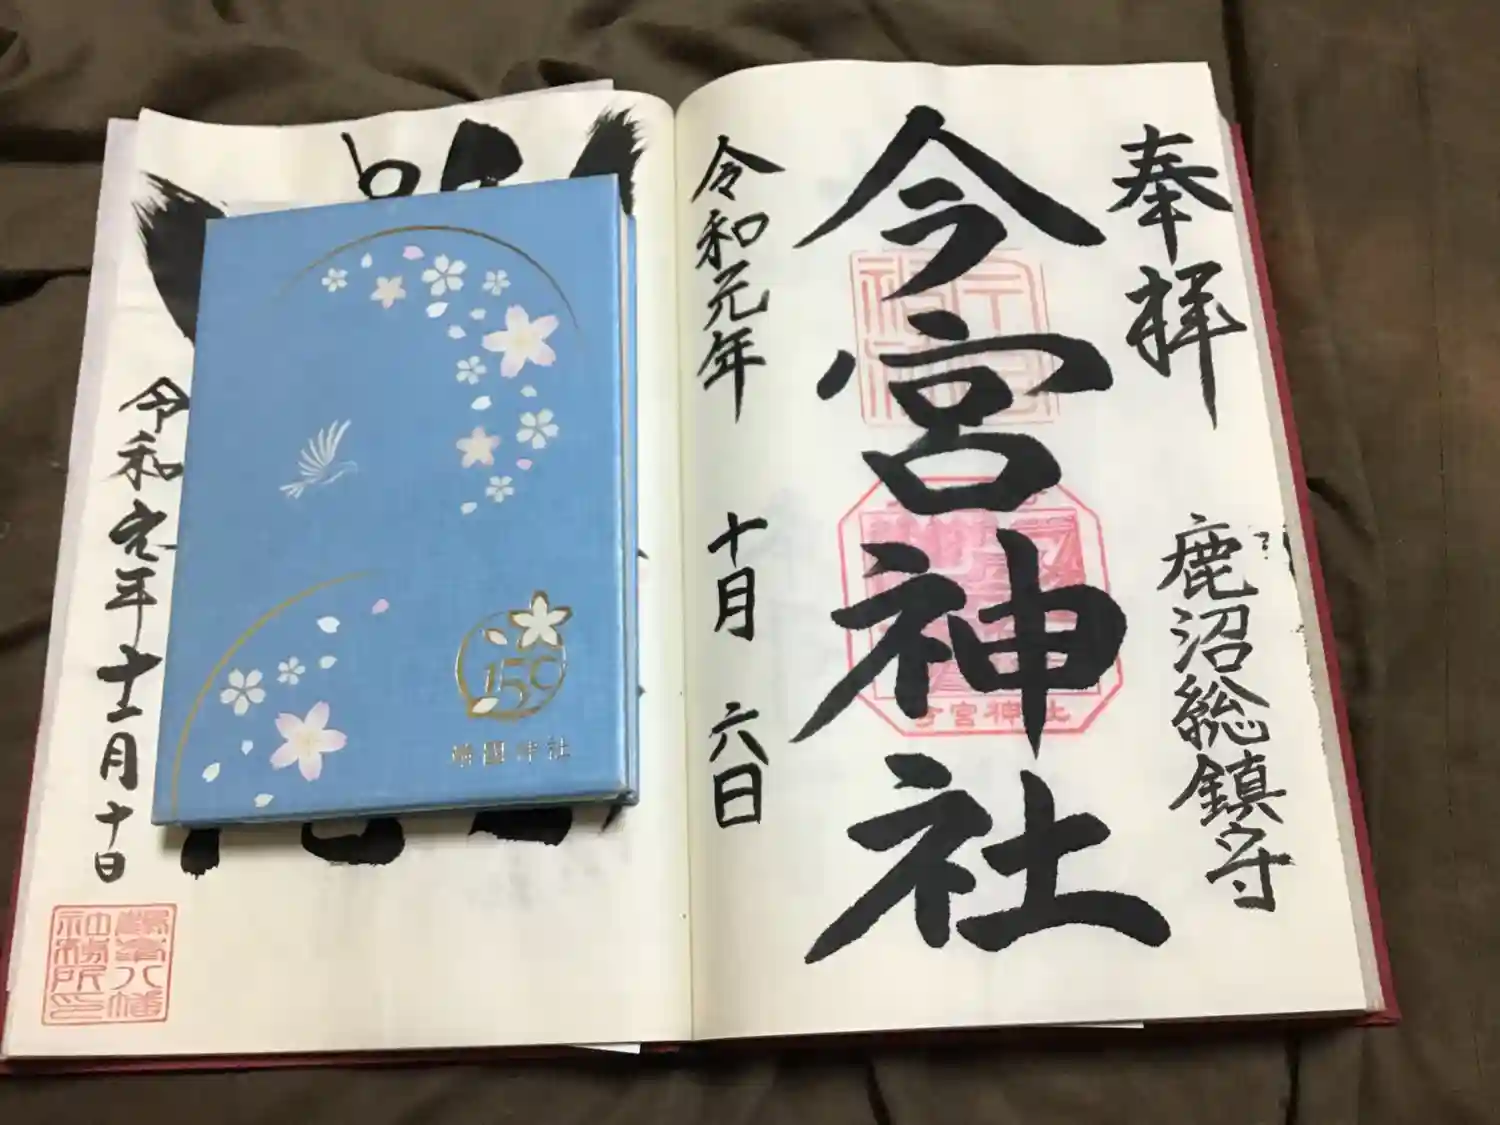 奉拝
鹿沼総鎮守
今宮神社
今宮神社
令和元年 十月 六日
150
靖國神社
令和元年十一月十日